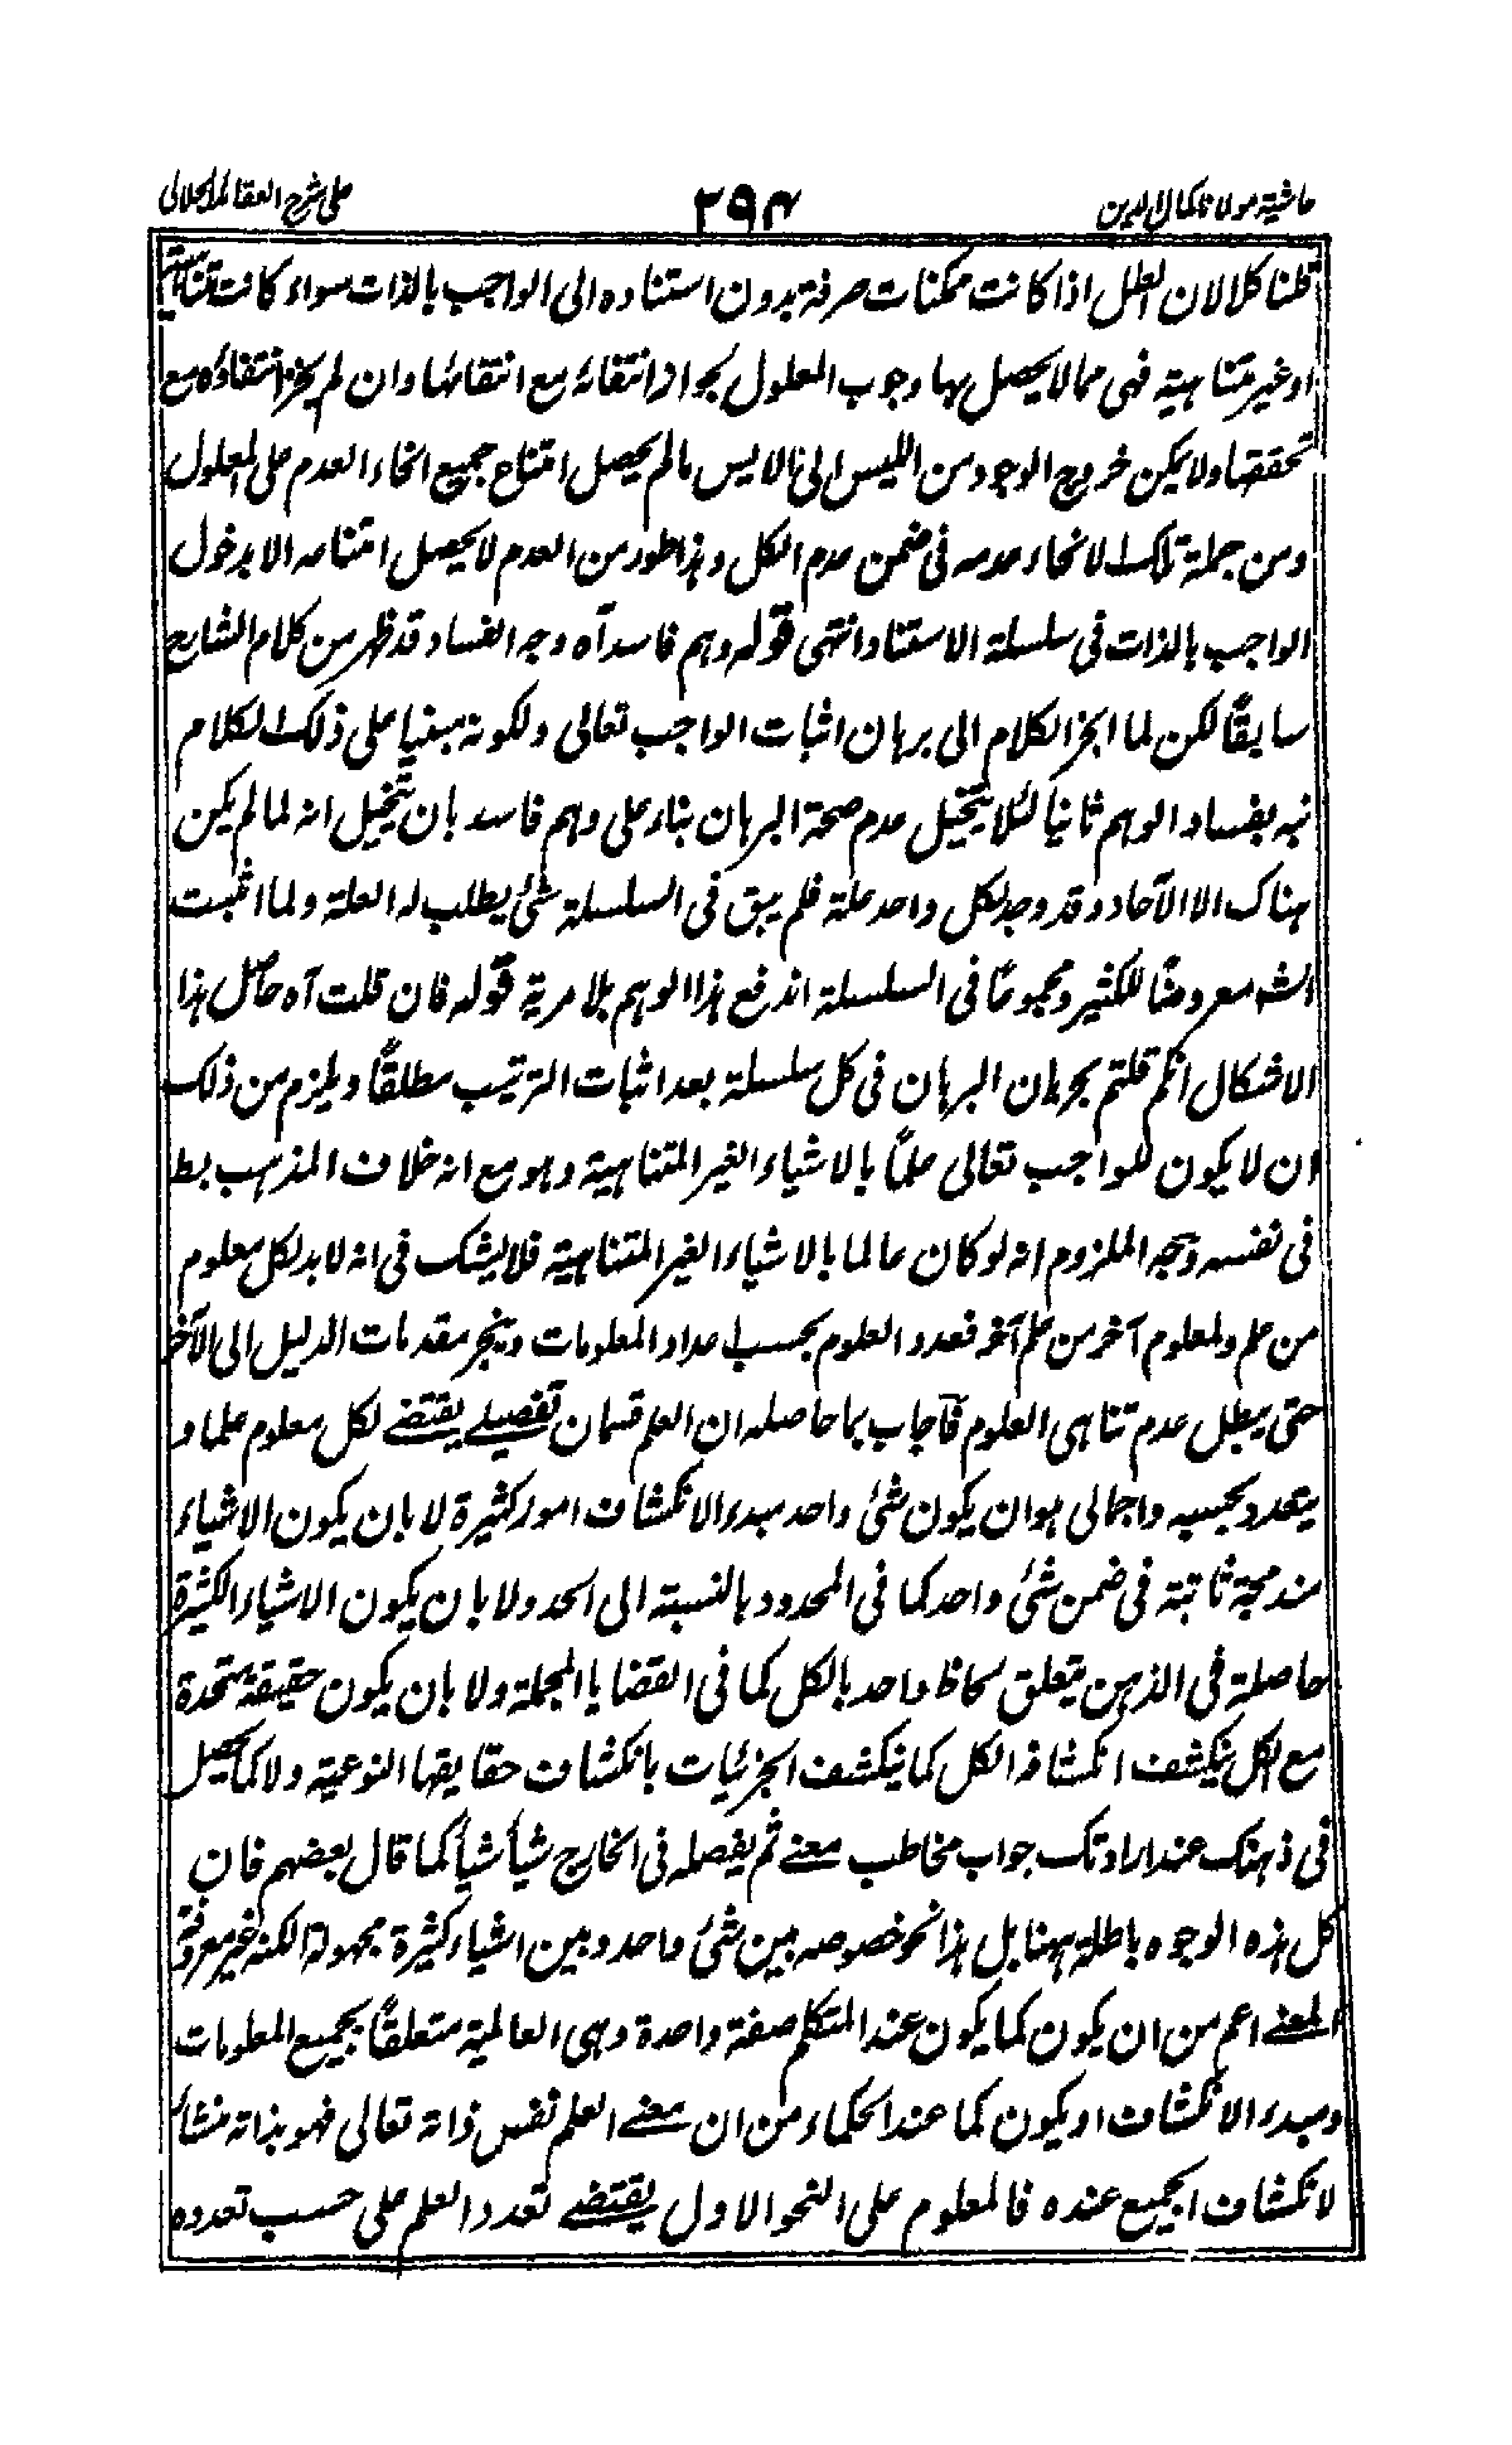 حاشیة مولانا کمال الدین
۲۹۴
علی شرح العقائد الجلالی
قلنا کلا لان العلل اذا کانت ممکنات صرفة بدون استناده الی الواجب بالذات سواء کانت متناهیة
او غیر متناهیة فهی مما لا یحصل بها وجوب المعلول بجواز انتفائه مع انتفائها وان لم یجز انتفاؤه مع
تحققها ولا یمکن خروج الوجود من اللیس الی الایس ما لم یحصل امتناع جمیع انحاء العدم علی المعلول
ومن جملة تلک الانحاء عدمه فی ضمن عدم الکل وهذا طور من العدم لا یحصل امتناعه الا بدخول
الواجب بالذات فی سلسلة الاستناد انتهی قوله وهم فاسد آه وجه الفساد قد ظهر من کلام الشارح
سابقًا لکن لما انجز الکلام الی برهان اثبات الواجب تعالی ولکونه مبنیا علی ذلک الکلام
نبه بفساد الوهم ثانیًا لئلا یتخیل عدم صحة البرهان بناء علی وهم فاسد بان یتخیل انه لما لم یکن
هناک الا الآحاد وقد وجد لکل واحد علة فلم یبق فی السلسلة شئ یطلب له العلة ولما اثبت
الش معروضًا للکثیر ومجموعًا فی السلسلة اندفع هذا الوهم بلا مریة قوله فان قلت آه حاصل هذا
الاشکال انکم قلتم بجریان البرهان فی کل سلسلة بعد اثبات الترتیب مطلقًا ویلزم من ذلک
ان لا یکون للواجب تعالی علمًا بالاشیاء الغیر المتناهیة وهو مع انه خلاف المذهب بط
فی نفسه وجه الملزوم انه لو کان عالما بالاشیاء الغیر المتناهیة فلا یشک فی انه لا بد لکل معلوم
من علم ولمعلوم آخر من علم آخر فعدد العلوم بحسب اعداد المعلومات وینجر مقدمات الدلیل الی الآخر
حتی یبطل عدم تناهی العلوم فاجاب بما حاصله ان العلم قسمان تفصیلے یقتضے لکل معلوم علما و
یتعدد بحسبه واجمالی هو ان یکون شئ واحد مبدء الانکشاف امور کثیرة لا بان یکون الاشیاء
مندمجة ثابتة فی ضمن شئ واحد کما فی المحدود بالنسبة الی الحد ولا بان یکون الاشیاء الکثیرة
حاصلة فی الذهن یتعلق لحاظ واحد بالکل کما فی القضایا المجملة ولا بان یکون حقیقة متحدة
مع الکل ینکشف انکشافه الکل کما ینکشف الجزئیات بانکشاف حقایقها النوعیة ولا کما یحصل
فی ذهنک عند ارادتک جواب مخاطب معنے ثم یفصله فی الخارج شیأ شیأ کما قال بعضهم فان
کل هذه الوجوه باطلة ههنا بل هذا نحو خصوصه بین شئ واحد وبین اشیاء کثیرة مجهولة الکنه غیر معروفة
المعنے اعم من ان یکون کما یکون عند المتکلم صفة واحدة وهی العالمیة متعلقًا بجمیع المعلومات
ومبدء الانکشاف او یکون کما عند الحکماء من ان معنے العلم نفس ذاته تعالی فهو بذاته منشأ
لانکشاف الجمیع عنده فالمعلوم علی النحو الاول یقتضے تعدد العلم علی حسب تعدده